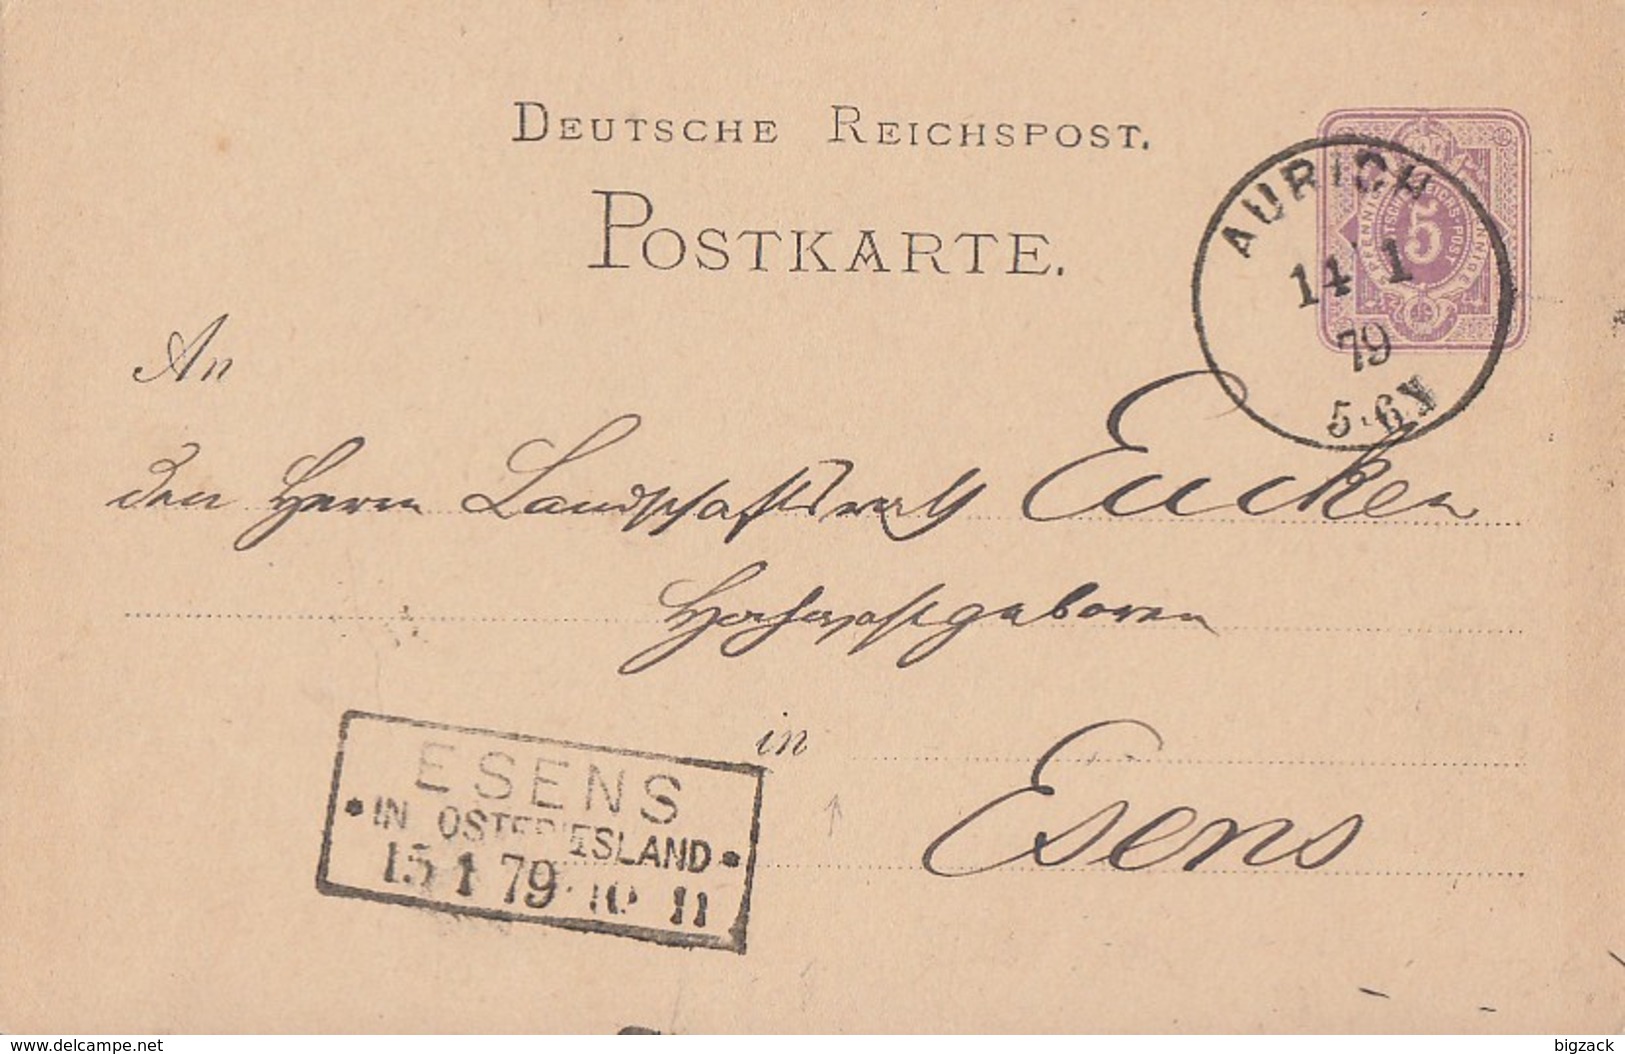 DEUTSCHE REICHSPOST.
POSTKARTE.
AURICH
14 1
79
5-6N
5
PFENNIG
DEUTSCHE REICHS-POST
An
den Herrn Landschaftsrath Eucken
in
Esens
ESENS
IN OSTFRIESLAND
15 1 79 10 11
www.delcampe.net
bigzack